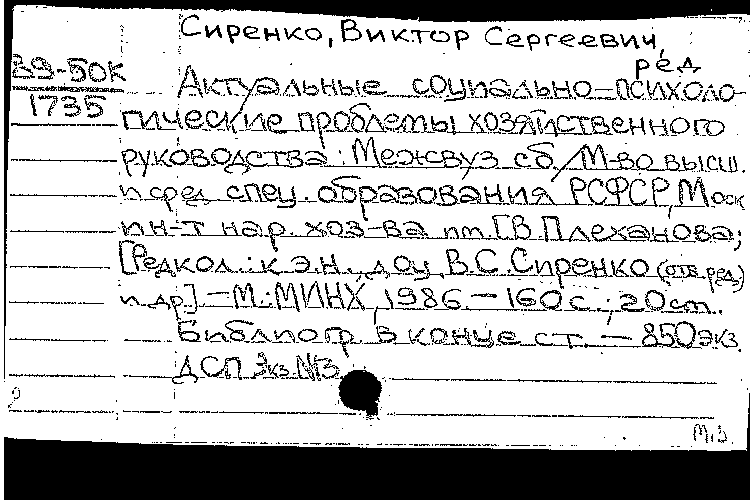 Сиренко, Виктор Сергеевич,
ред
89-50К
1735
Актуальные социально-психоло-
гические проблемы хозяйственного
руководства: Межвуз сб. / М-во высш.
и сред спец. образования РСФСР, Моск
ин-т нар. хоз-ва им. Г.В. Плеханова;
[Редкол.: к.э.н., доц. В.С. Сиренко (отв. ред.)
и др.] - М.: МИНХ, 1986. - 160 с.; 20 см.
Библиогр. в конце ст. - 850 экз.
ДСП Экз. №3